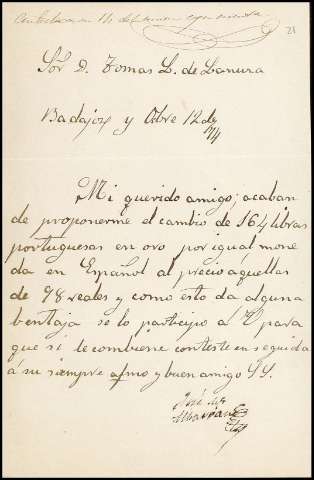 Contestada en 14 del mismo
21
Sor D. Tomas L. de Lanura
Badajoz y Obre 12 de
74
Mi querido amigo; acaban
de proponerme el cambio de 164 libras
portuguesas en oro por igual mone
da en Español al precio aquellas
de 98 reales y como esto da alguna
bentaja se lo participo á V para
que si le combiene conteste en seguida
á su siempre afmo y buen amigo SS.
José de